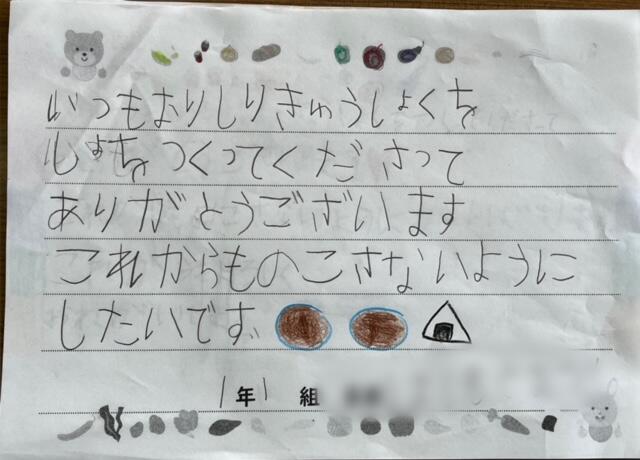 いつもおりしりきゅうしょくを
つくってくださって
ありがとうございます
これからものこさないように
したいです。
1年1組